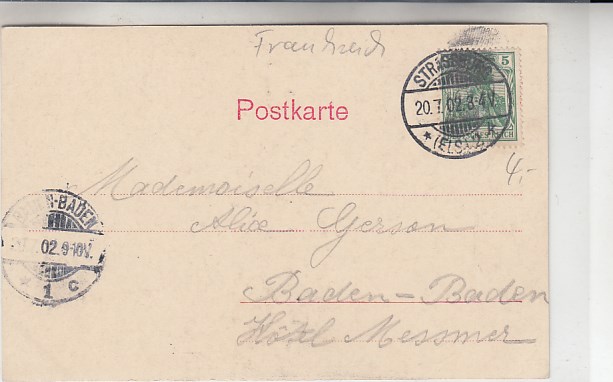 Frankreich
5
STRASSBURG
20.7.02.3-4V.
* (ELS.) 2 *
Postkarte
4,-
Mademoiselle
Alice Gerson
BADEN-BADEN
02.9-10V.
* 1 c
Baden-Baden
Hôtel Messmer